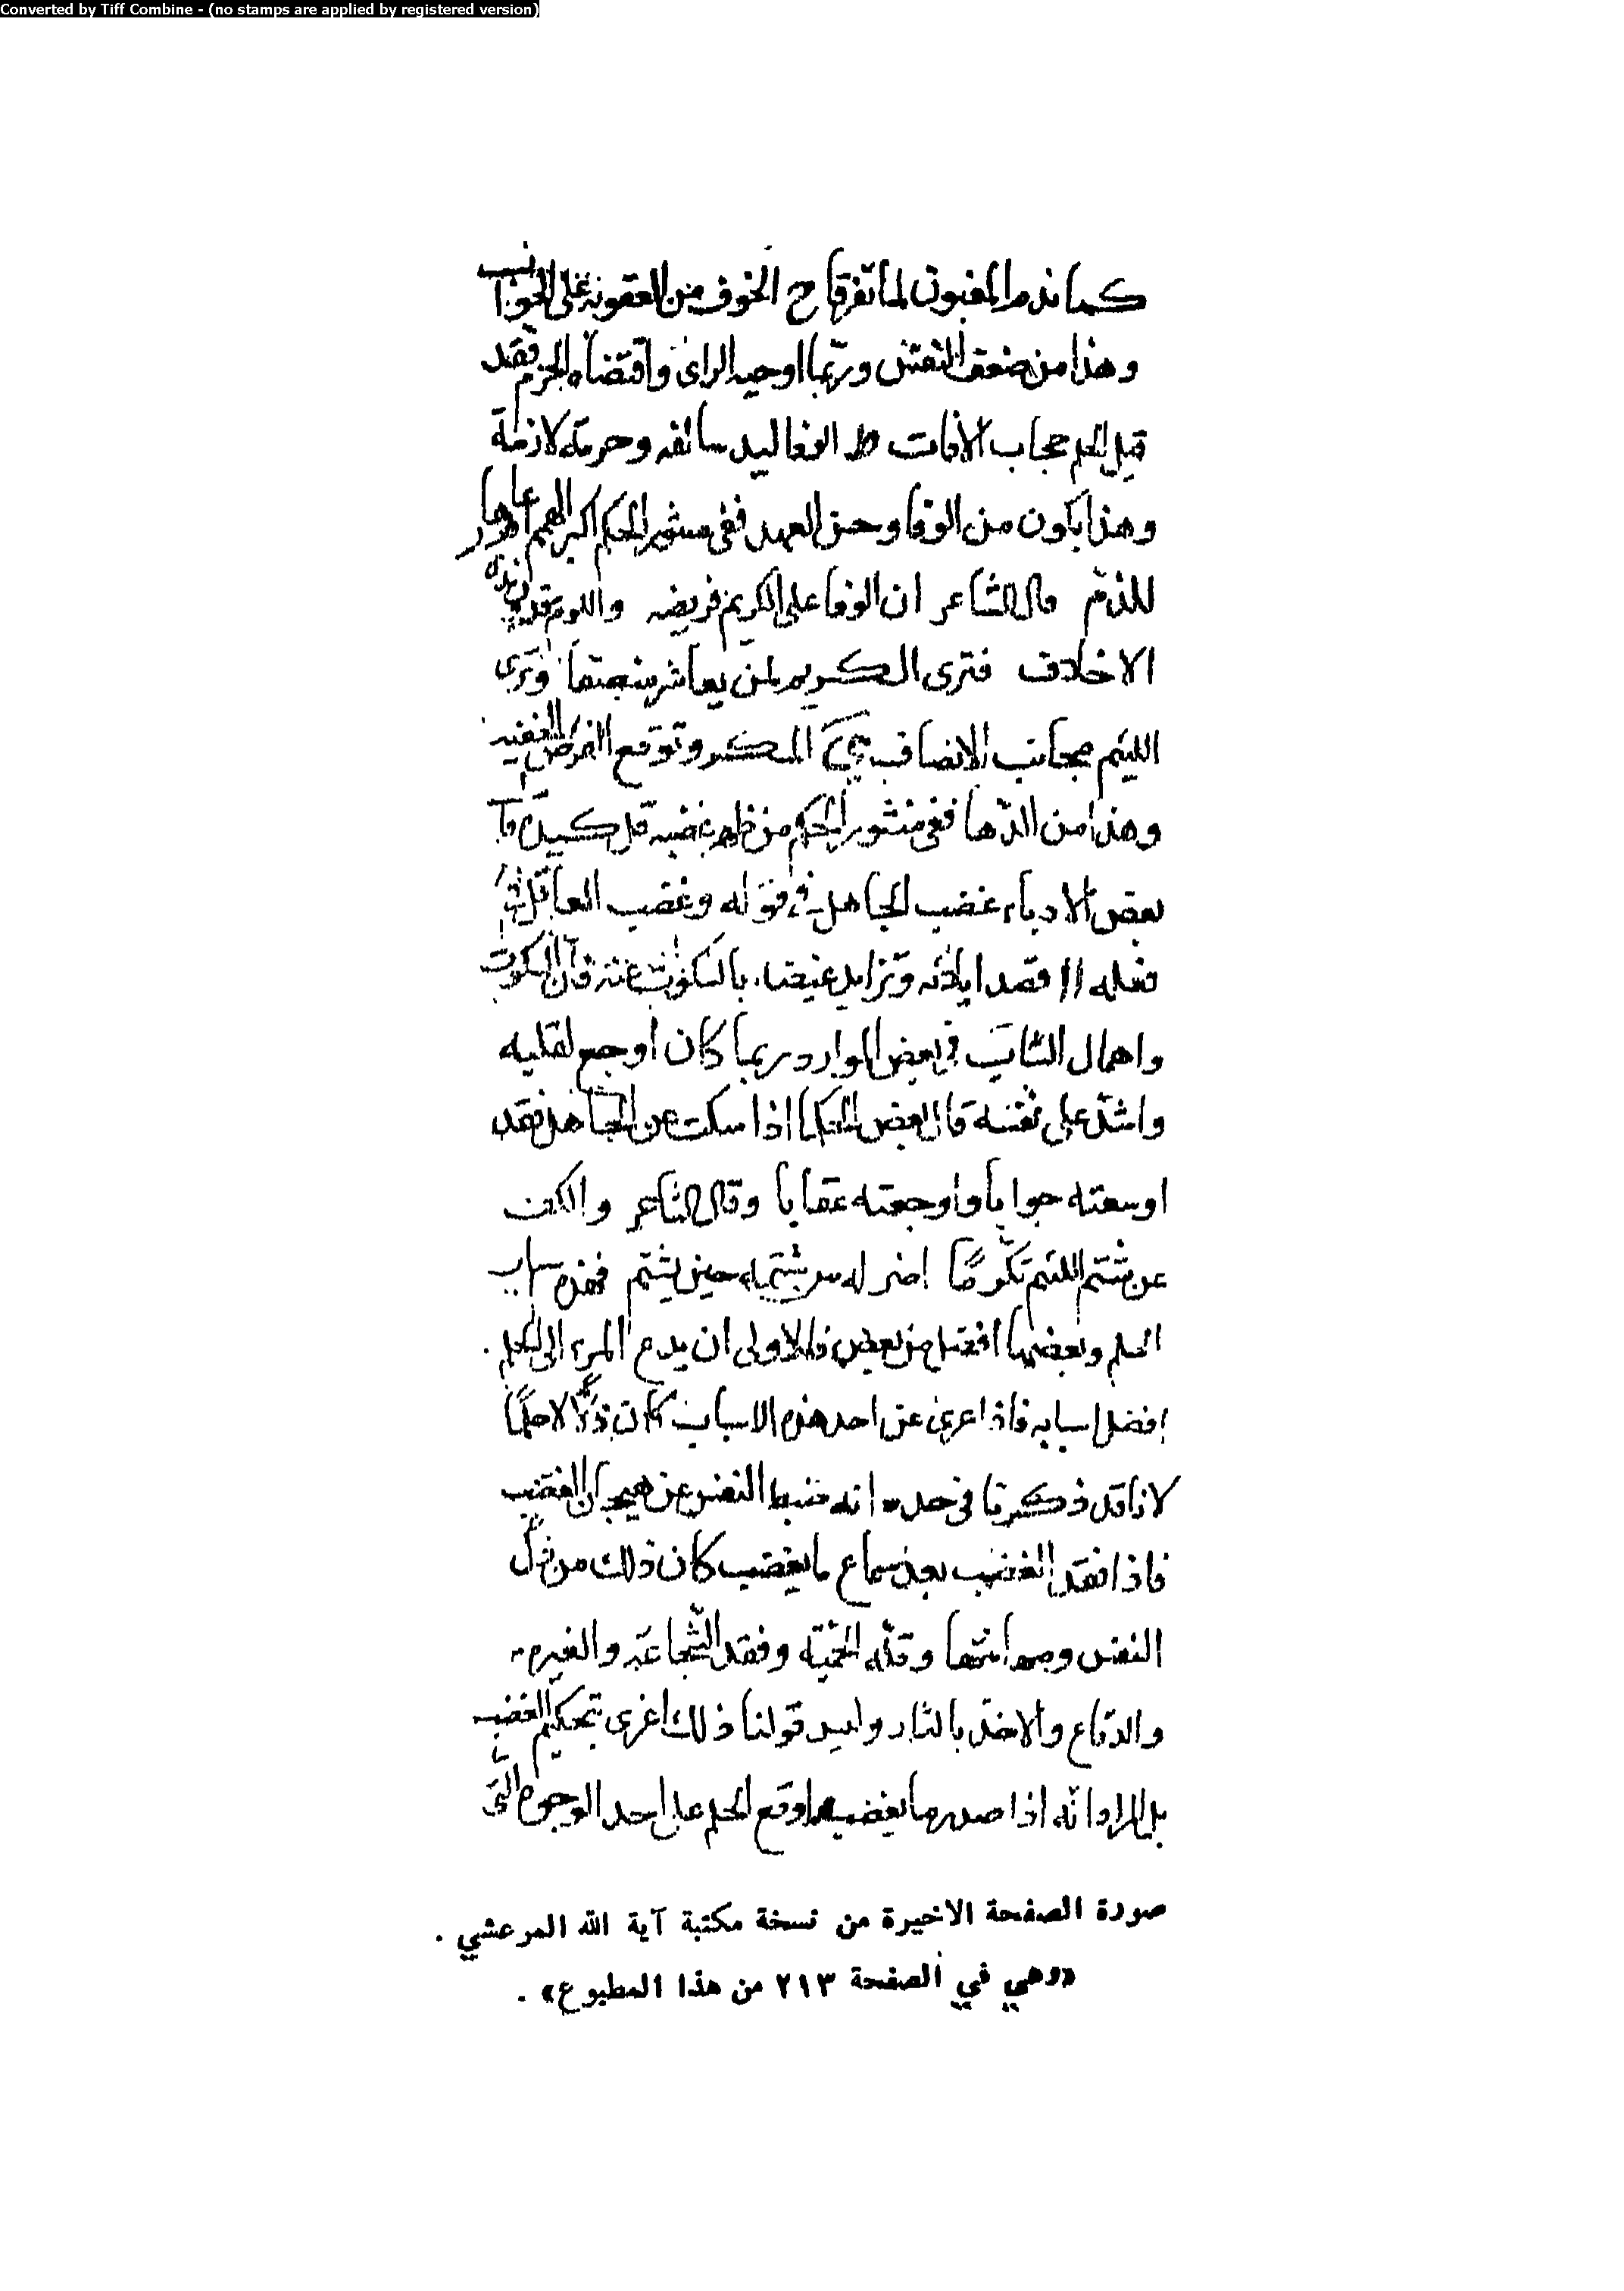 Converted by Tiff Combine - (no stamps are applied by registered version)
كما ندم المغبون لما تفرقا ح الخوف من العقوبة على الجواب
وهذا من ضعف النفس وربما اوجبه الرأى واقتضاه الحزم فقد
قيل الحلم حجاب الافات ط الوفا ليد سالفه وحرمة لازمة
وهذا يكون من الوفا وحسن العهد ففى منثور الحكم اكبر الهمم
للذمم قال الشاعر ان الوفا على الكريم فريضه واللوم مقرون
الاخلاف فترى الكريم لمن يعاشر منصتفا وترى
اللئيم مجانب الانصاف ى المكر وتوقع الفرص الخفيه
وهذا من الدها ففى منثور الحكم من ظهر غضبه قل كيده قا
بعض الادباء غضب الجاهل فى قوله وغضب العاقل فى
فعله اا قصد ايلائه وتزايد غيضا، بالسكوت عنه فان السكوت
واهمال الشاتب فى بعض الموارد ربما كان اوجع لقلبه
واشد على نفسه قال بعض الحكما اذا سكت عن الجاهل فقد
اوسعته جوابا واوجعته عقابا وقال الشاعر والكف
عن شتم اللئيم تكرما اضر له من شتمه حين يشتم فهذه
الحلم وبعضها افضل من بعض فالاولى ان يدع المرء الى الحلم
افضل اسبابه فاذا عرى عن احد هذه الاسباب كان ذلا لا حلما
لانا قد ذكرنا فى حده انه ضبط النفس عن هيجان الغضب
فاذا فقد الغضب بعد سماع ما يغضب كان ذلك من ذل
النفس ومهانتها وقلة الحمية وفقد الشجاعة والغيره
والدفاع والاخذ بالثار وليس قولنا ذلك اغرى بتحكيم الغضب
بل المراد انه اذا صدر ما يغضب اوقع الحلم على احد الوجوه التى
صورة الصفحة الاخيرة من نسخة مكتبة آية الله المرعشي .
«وهي في الصفحة ٢١٣ من هذا المطبوع» .